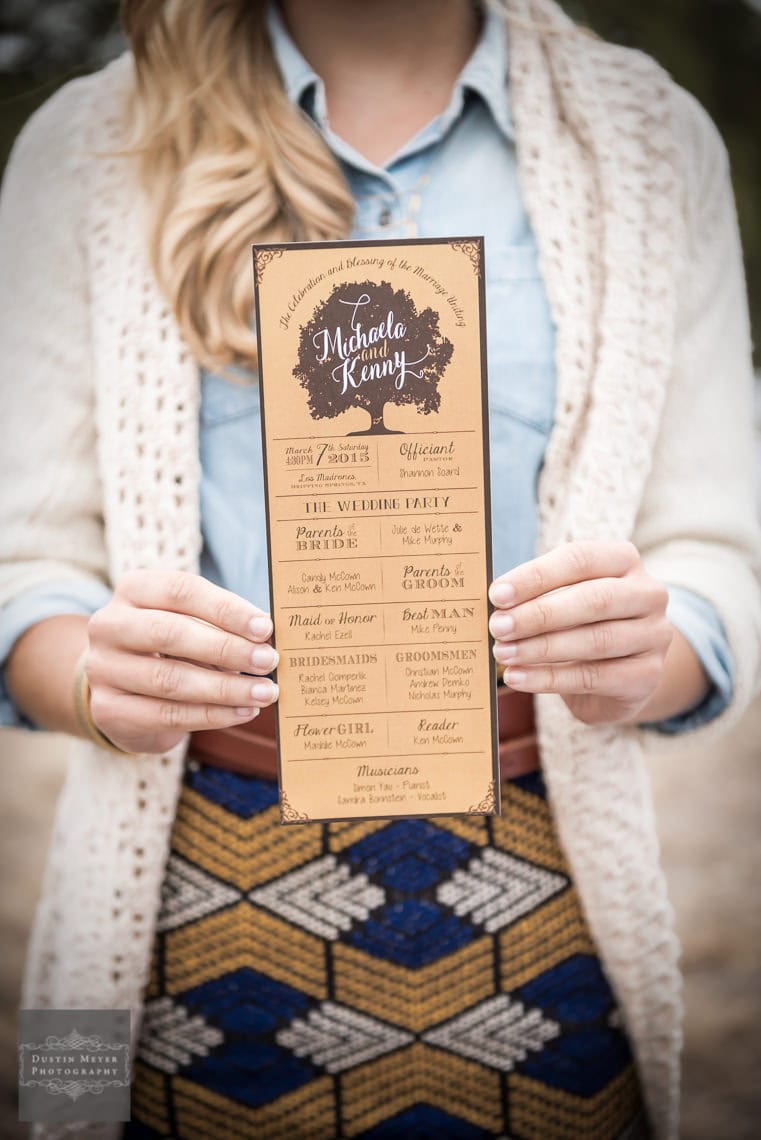 The Celebration and Blessing of the Marriage Uniting
Michaela
and
Kenny
March 7th Saturday
4:30PM 2015
Los Madrones,
DRIPPING SPRINGS, TX
Officiant
PASTOR
Shannon Soard
THE WEDDING PARTY
Parents of the
BRIDE
Julie de Wette &
Mike Murphy
Candy McCown
Alison & Ken McCown
Parents of the
GROOM
Maid of Honor
Rachel Ezell
Best MAN
Mike Penny
BRIDESMAIDS
Rachel Gomperlik
Bianca Martinez
Kelsey McCown
GROOMSMEN
Christian McCown
Andrew Demko
Nicholas Murphy
Flower GIRL
McCown
Reader
Ken McCown
Musicians
Simon Yau - Pianist
Sandra Bornstein - Vocalist
DUSTIN MEYER
PHOTOGRAPHY